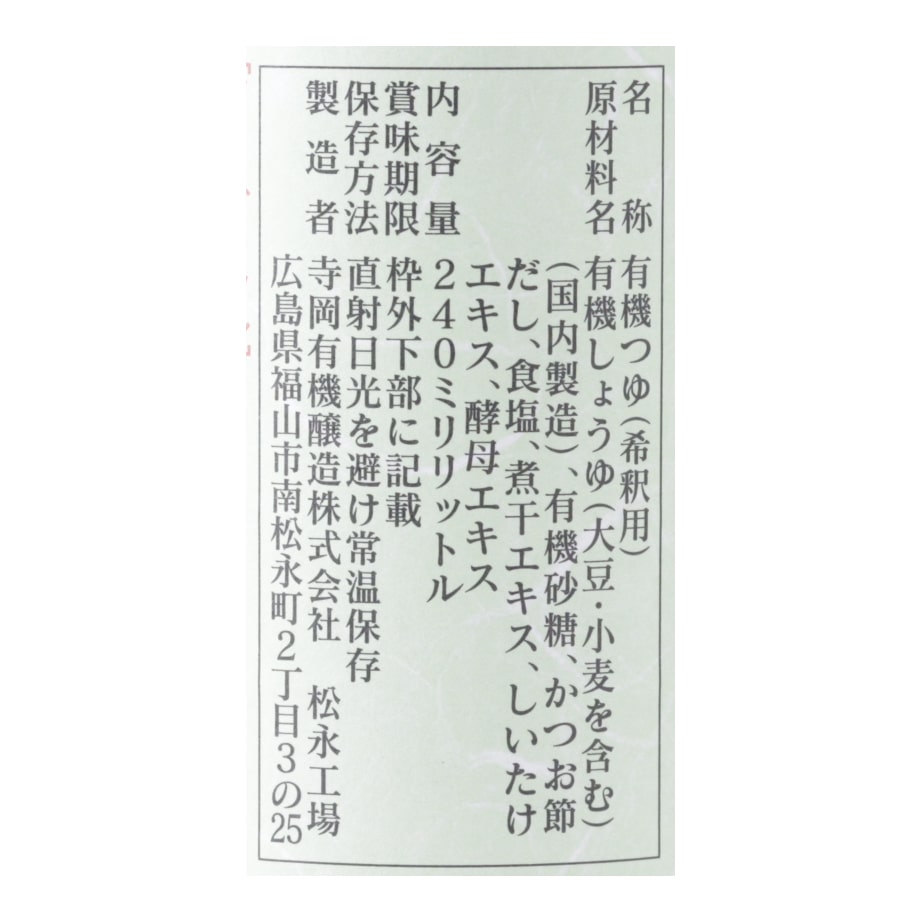 名称 有機つゆ(希釈用)
原材料名 有機しょうゆ(大豆・小麦を含む)
(国内製造)、有機砂糖、かつお節
だし、食塩、煮干エキス、しいたけ
エキス、酵母エキス
内容量 240ミリリットル
賞味期限 枠外下部に記載
保存方法 直射日光を避け常温保存
製造者 寺岡有機醸造株式会社 松永工場
広島県福山市南松永町2丁目3の25